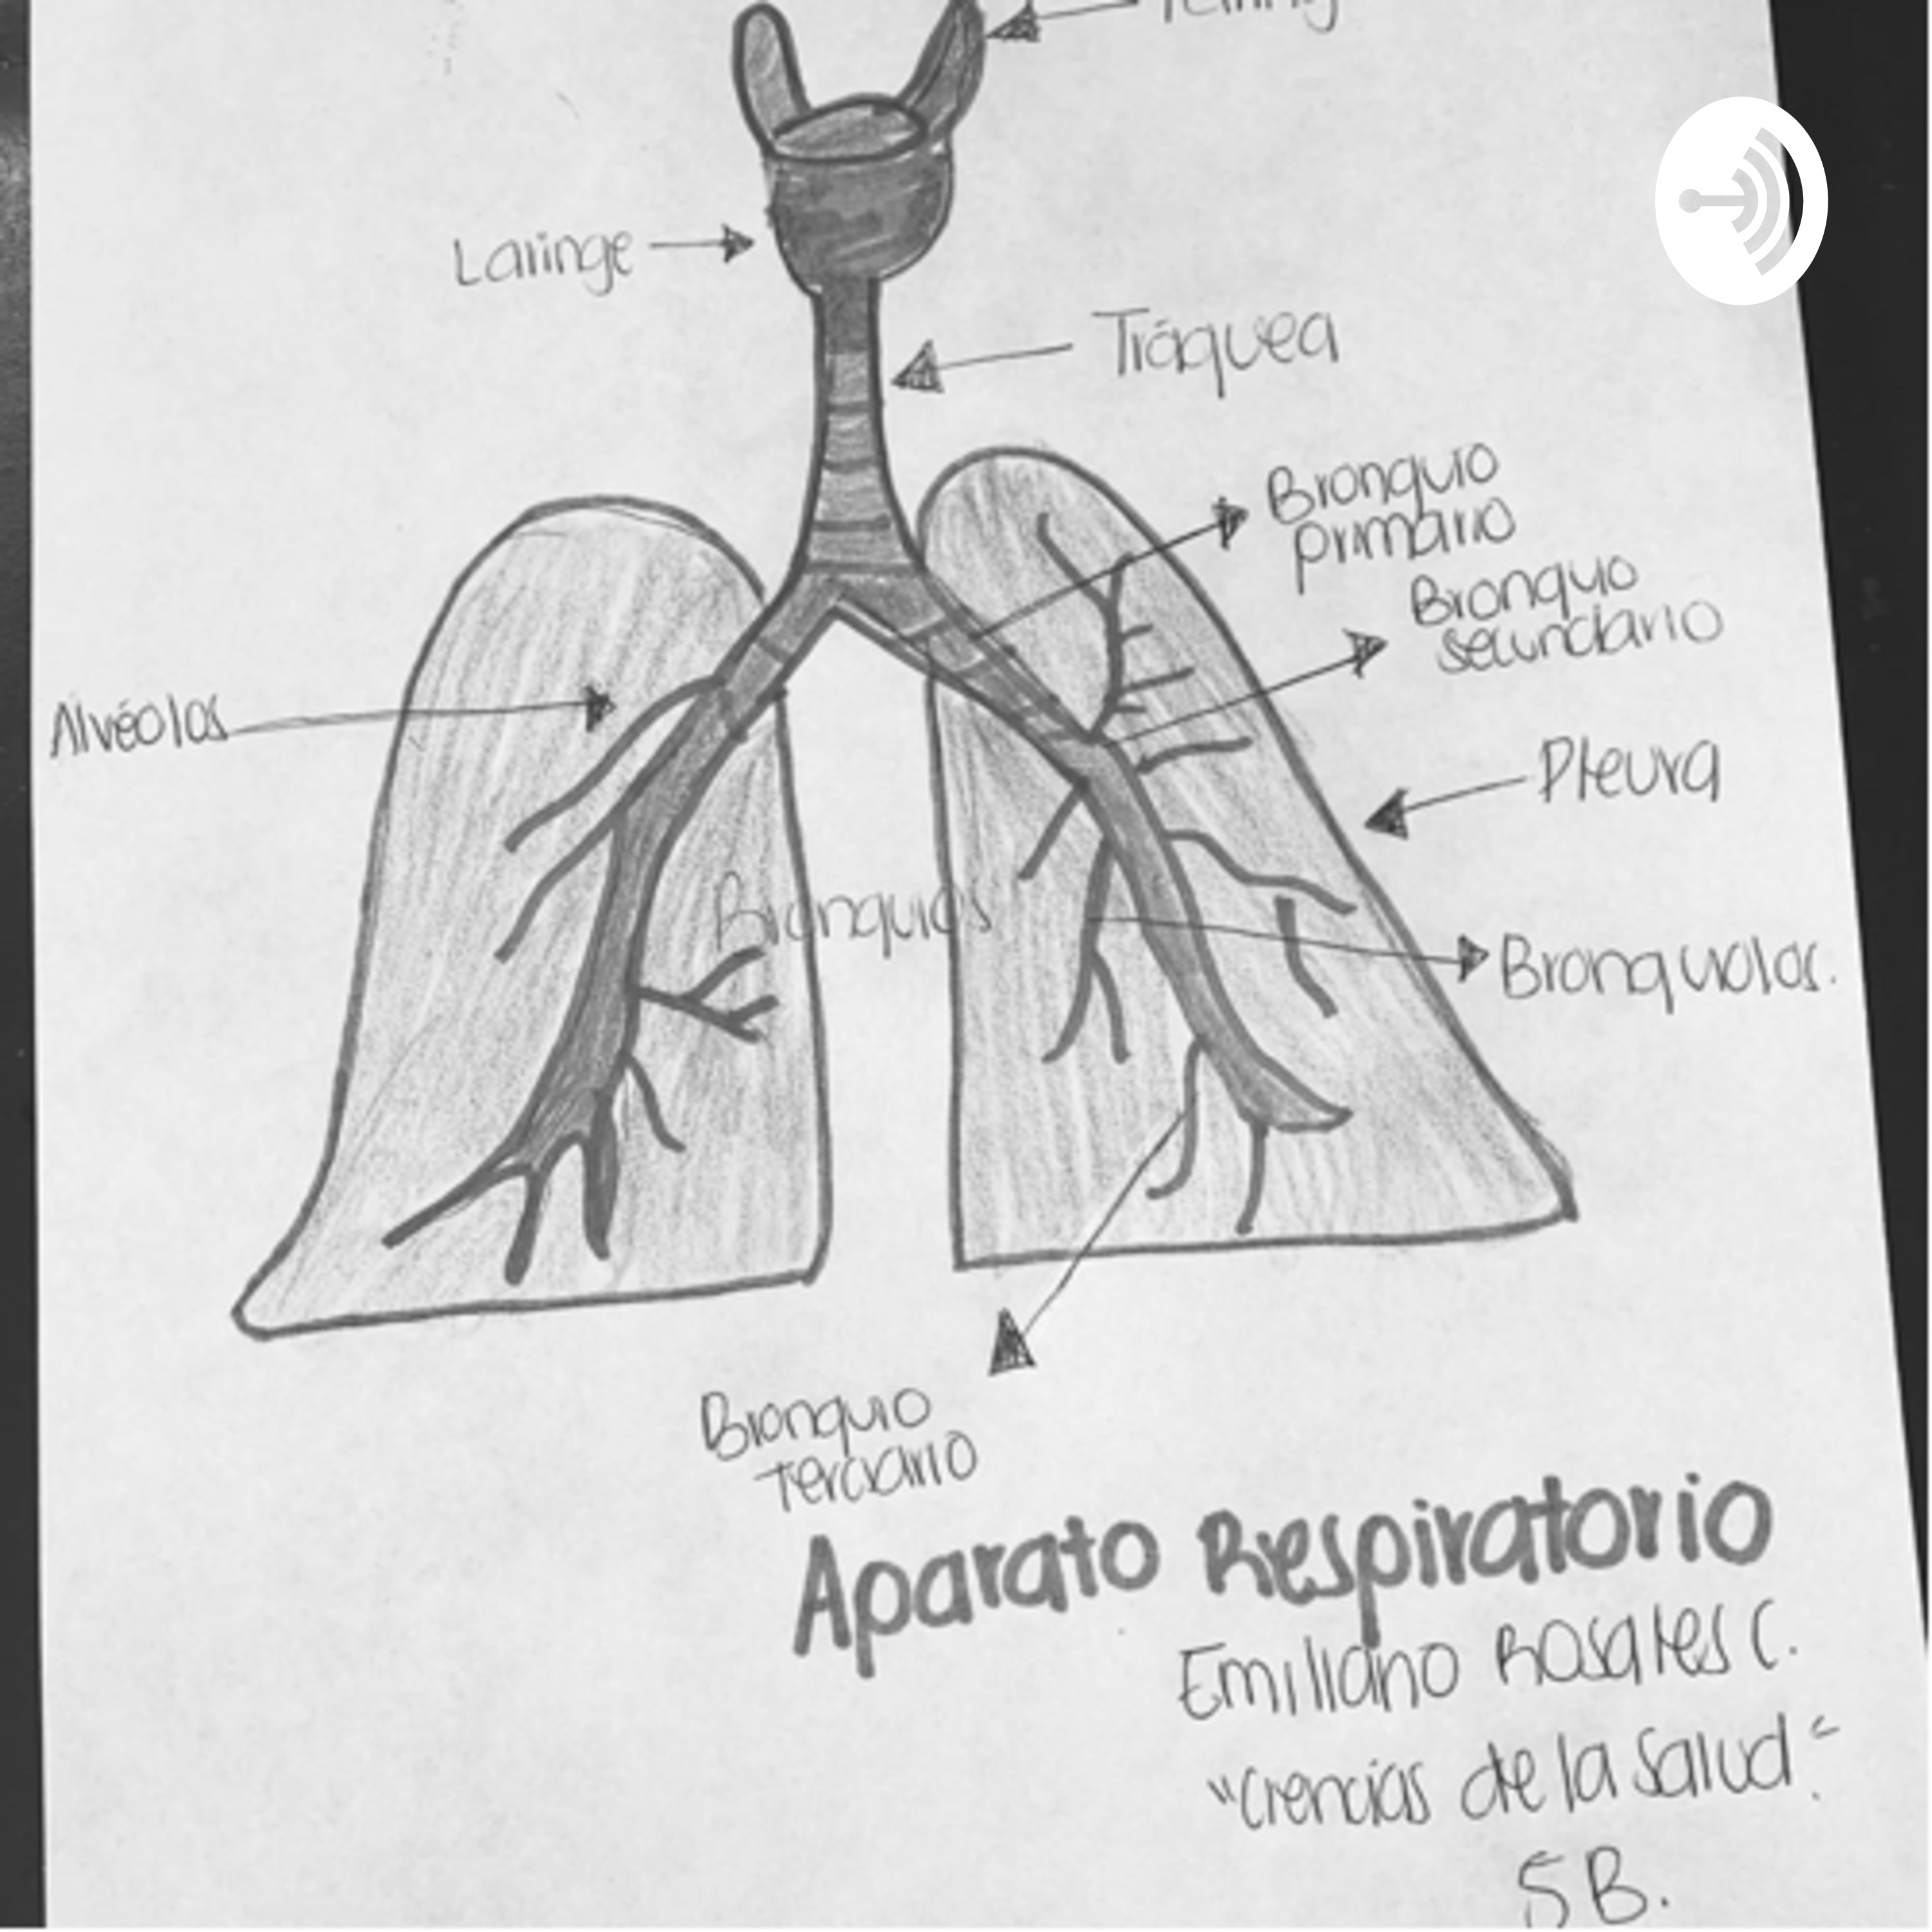 Laringe
Tráquea
Bronquio
primario
Bronquio
secundario
Alvéolos
Pleura
Bronquios
Bronquiolos.
Bronquio
Terciario
Aparato Respiratorio
Emiliano Rosales C.
"Ciencias de la Salud".
5B.